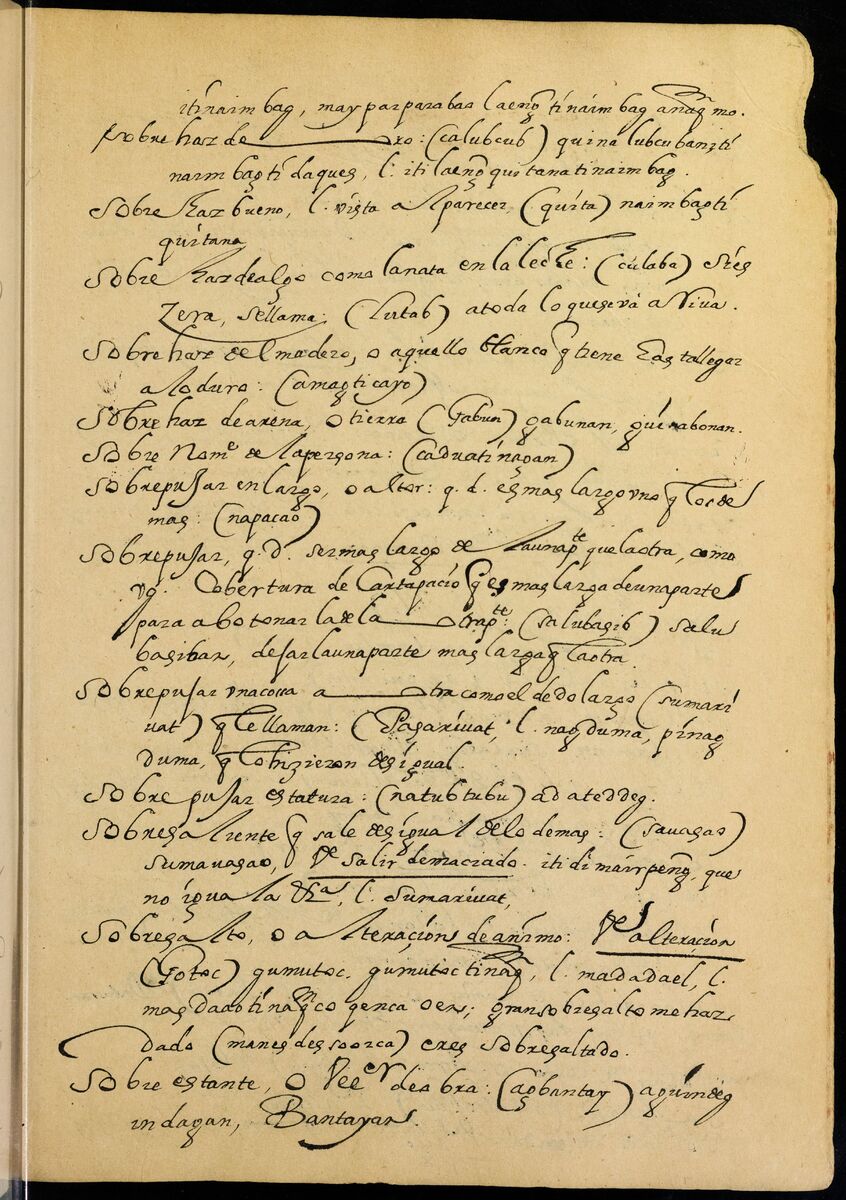 itinaimbag, may parparaban laeng̃ ti naimbag anaq̃ mo.
Sobrehaz de oro: (calubcub) quinalubcubanisti
naimbag ti daques, l. iti laeng̃ quitana ti naimbag.
Sobre haz bueno, l. vista a Aparecer, (quita) naimbag ti
quitana
Sobre haz de algo como la nata en la leche: (culaba) Si es
Zera, se llama: (Lutab) a toda lo que se va a Riva.
Sobrehaz del madero, o aquello blanco q̃ tiene hasta llegar
a lo duro: (amag ti cayo)
Sobrehaz de arena, o tierra (Gabun) gabunan, guinabonan.
Sobre Nom.e de la persona: (caduatinagan)
Sobrepujar en largo, o altor: q. d. es mas largo uno q̃ los de
mas: (napacao)
Sobrepujar, q. D. ser mas largo de la una p.te que la otra, como
vg. Cobertura de Cartapacio q̃ es mas larga de una parte
para abotonarla de la otra p.te: (salubagib) salu
bagiban, dejar la una parte mas larga q̃ la otra.
Sobrepujar una cosa a otra como el dedo largo (sumari
vat) q̃ le llaman: (Pagarivat, l. nagduma, pinag
duma, q̃ lo hizieron desigual.
Sobre pujar estatura: (natubtubu) ad ateddeg.
Sobresaliente q̃ sale desigual de lo demas: (savagao)
sumavagao, Ve salir demaciado. iti di mairpeng̃, que
no iguala &.a, l. sumarivat,
Sobresalto, o alteración de animo: Ve alteración
(Gotoc) gumutoc, gumutoc tinaq̃, l. madadael, l.
masdaao ti naq̃co genca oen; gran sobresalto me haz
dado (manesdessoorca) eres sobresaltado.
Sobre estante, o Veedor de obra: (agbantay) aguindeg
indagan, Bantayan.